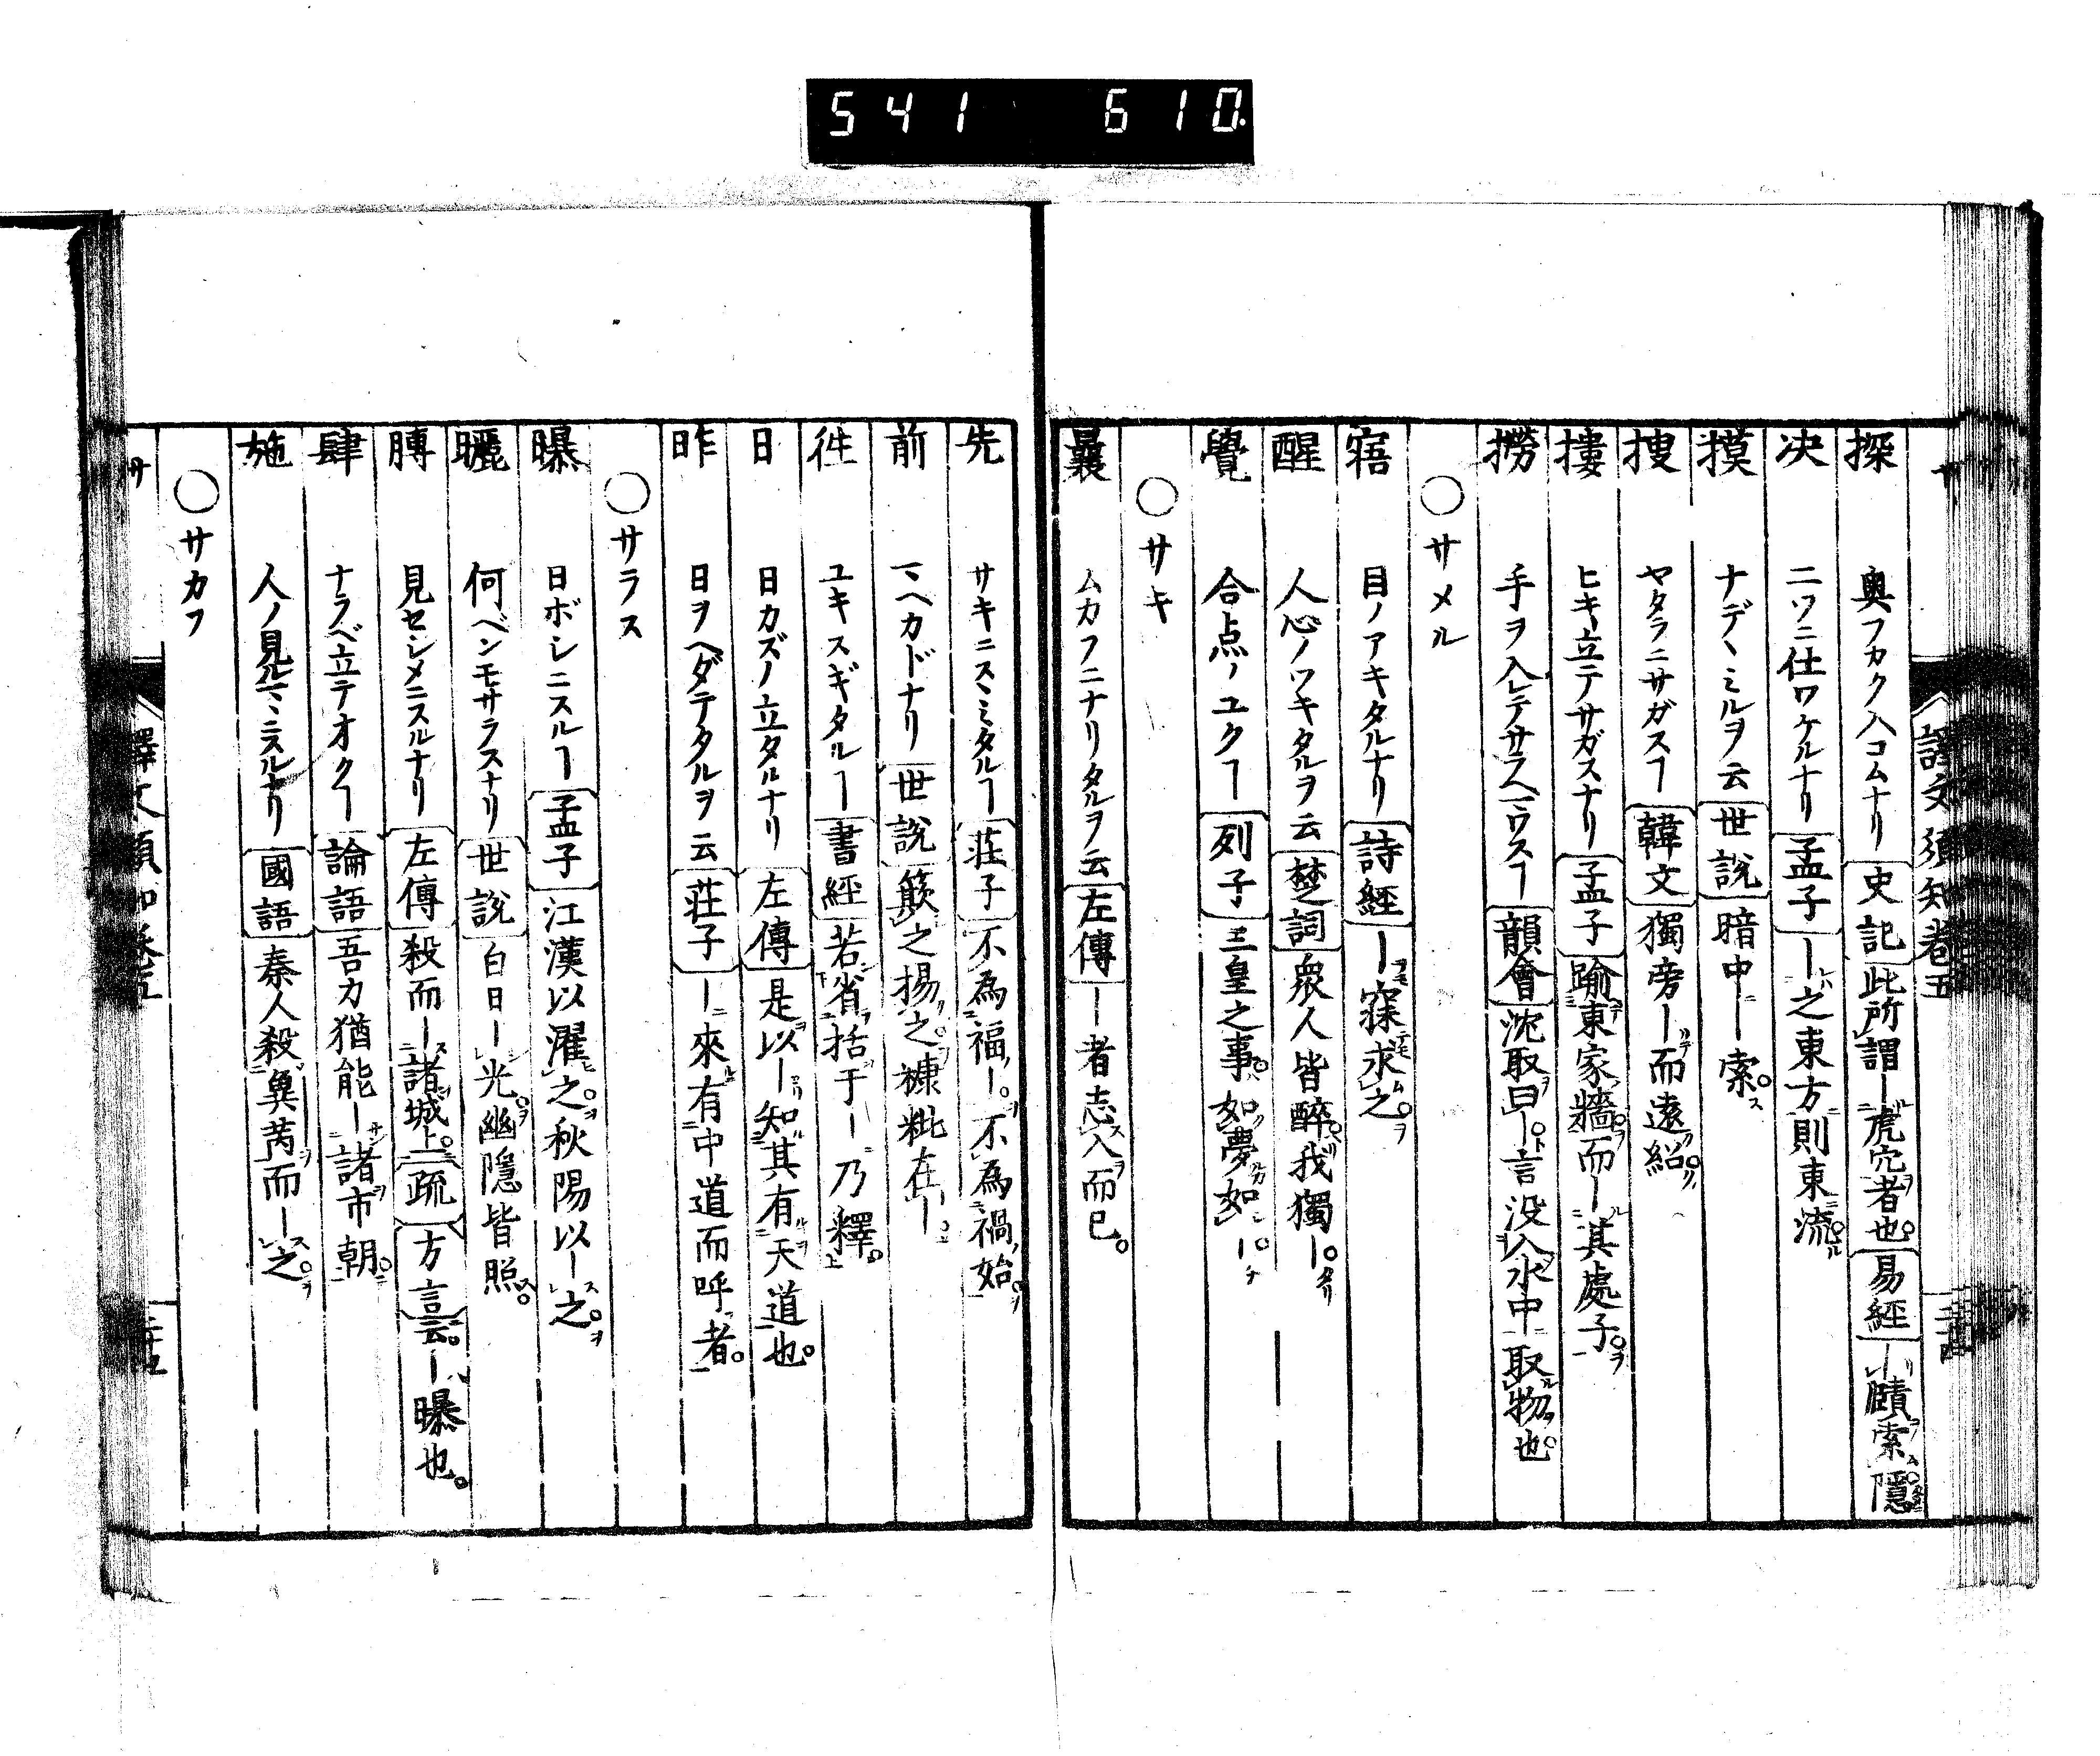 541 610
譯文須知卷五
探 奥フカク入コムナリ 史記 此所謂ー虎穴者也 易經 ー賾索隱
決 二ツニ仕ワケルナリ 孟子 ー之東方則東流
摸 ナデヽミルヲ云 世說 暗中ー索
搜 ヤタラニサガスヿ 韓文 獨旁ー而遠紹
摟 ヒキ立テサガスナリ 孟子 踰東家牆而ー其處子
撈 手ヲ入レテサフ 韻會 沈取曰ー言没入水中取物也
○サメル
寤 目ノアキタルナリ 詩經 ー寐求之
醒 人心ノツキタルヲ云 楚詞 衆人皆醉我獨ー
覺 合点ノユクヿ 列子 三皇之事如夢如ー
○サキ
曩 ムカフニナリタルヲ云 左傳 ー者志入而已
先 サキニスヽミタルヿ 莊子 不為福ー不為禍始
前 マヘカドナリ 世說 簸之揚之糠粃在ー
徃 ユキスギタルヿ 書經 若省括于ー乃釋
日 日カズノ立タルナリ 左傳 是以ー知其有天道也
昨 日ヲヘダテタルヲ云 莊子 ー來有中道而呼者
○サラス
曝 日ボシニスルヿ 孟子 江漢以濯之秋陽以ー之
曬 何ベンモサラスナリ 世說 白日ー光幽隱皆照
膊 見セシメニスルナリ 左傳 殺而ー諸城上 疏 方言云ー曝也
肆 ナラベ立テオクヿ 論語 吾力猶能ー諸市朝
施 人ノ見ルマヽニスルナリ 國語 秦人殺冀芮而ー之
○サカフ
サ